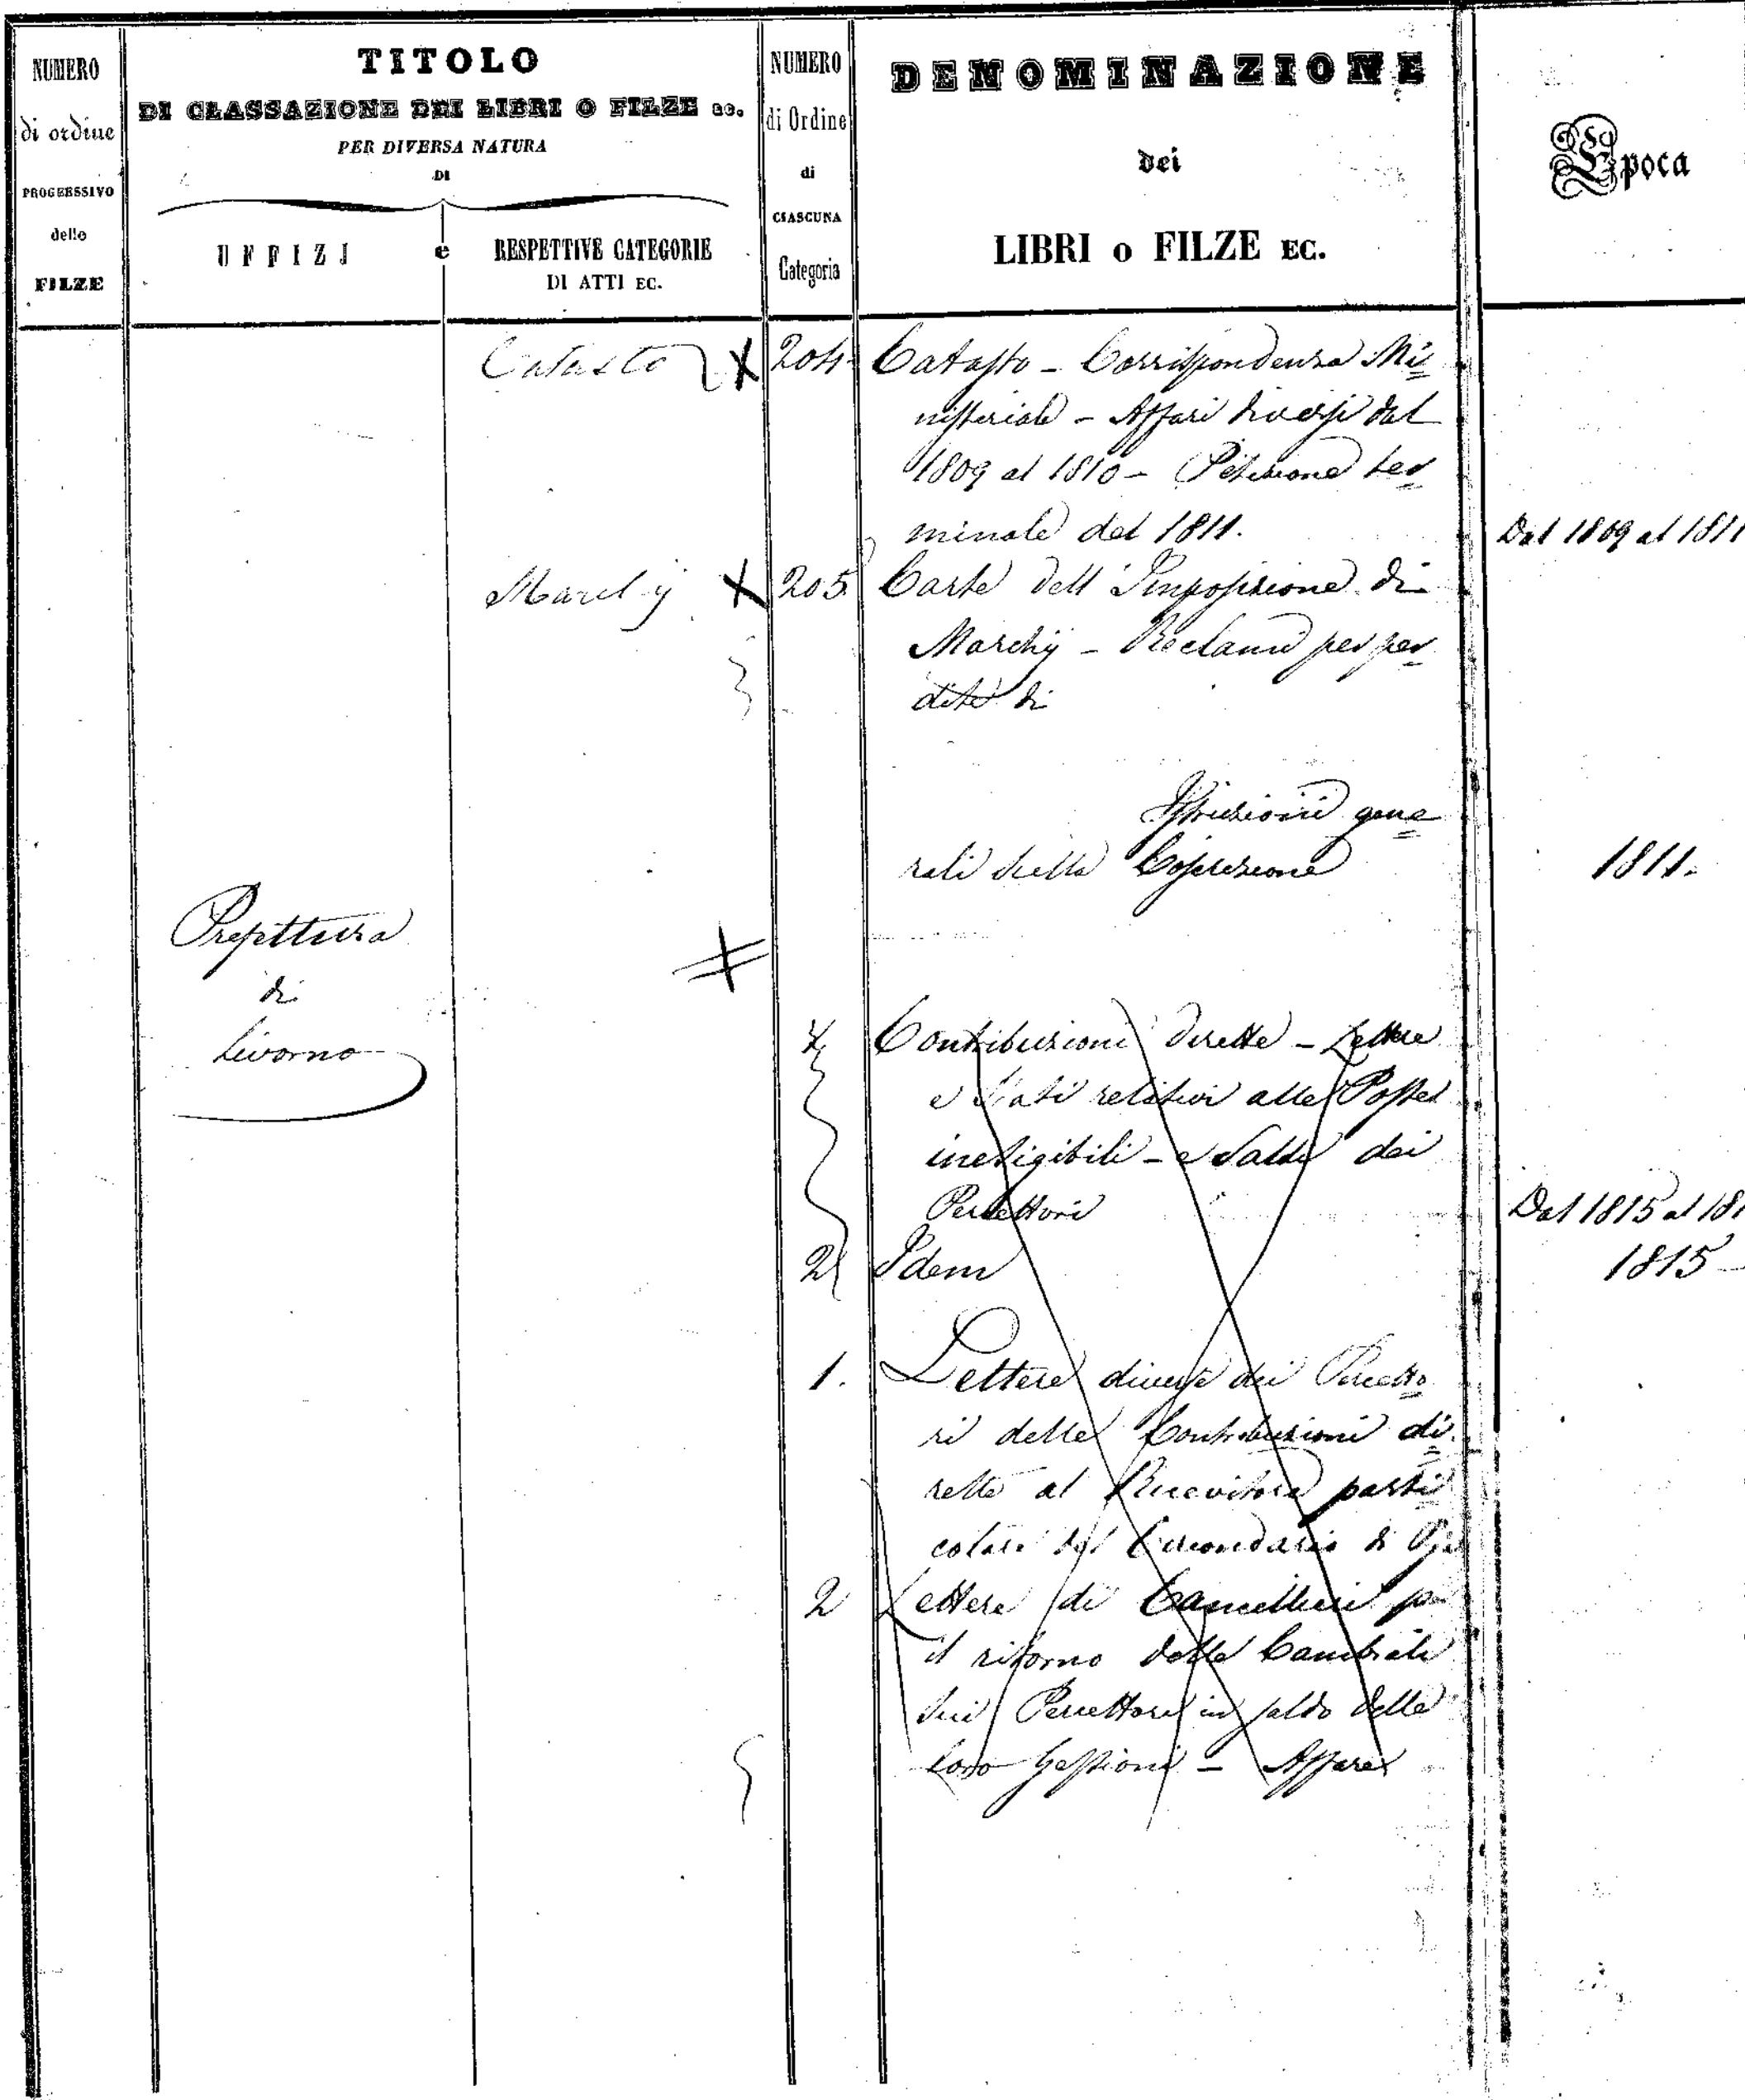 NUMERO
di ordine
PROGERSSIVO
delle
FILZE
TITOLO
DI CLASSAZIONE DEI LIBRI O FILZE EC.
PER DIVERSA NATURA
DI
UFFIZJ e RESPETTIVE CATEGORIE
DI ATTI EC.
NUMERO
di Ordine
di
CIASCUNA
Categoria
DENOMINAZIONE
dei
LIBRI o FILZE EC.
Epoca
Catasto X 204 Catasto - Corrispondenza Mi=
nisteriale - Affari diversi dal
1809 al 1810 - Petizione ter=
minale del 1811. Dal 1809 al 1811
X 205 Carte dell'Imposizione di
- Reclami per per=
dite di
Istruzioni gene=
rali della 1811.
Prefettura
di
Livorno
Contribuzioni dirette - Lettere
e Stati relativi alle Poste
inesigibili - e Saldi dei
Percettori Dal 1815 al 181
2 Idem 1815
1. Lettere diverse dei Percetto=
ri delle Contribuzioni di=
rette al Ricevitore parti
colare del Circondario di
2 Lettere di Cancellieri per
il ritorno delle Cambiali
dei Percettori in saldo delle
loro Gestioni - Affare